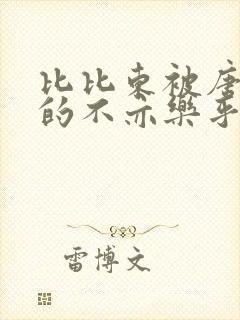 比比东被唐
的不亦乐乎
雷博文